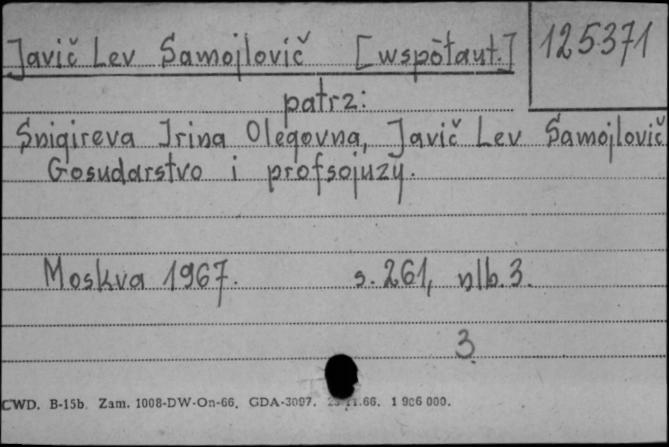 Javič Lev Samojlovič [współaut.] 125371
patrz:
Snigireva Irina Olegovna, Javič Lev Samojlovič
Gosudarstvo i profsojuzy.
Moskva 1967. s. 261, nlb. 3.
3
CWD. B-15b. Zam. 1008-DW-On-66. GDA-3097. 11.66. 1 906 000.